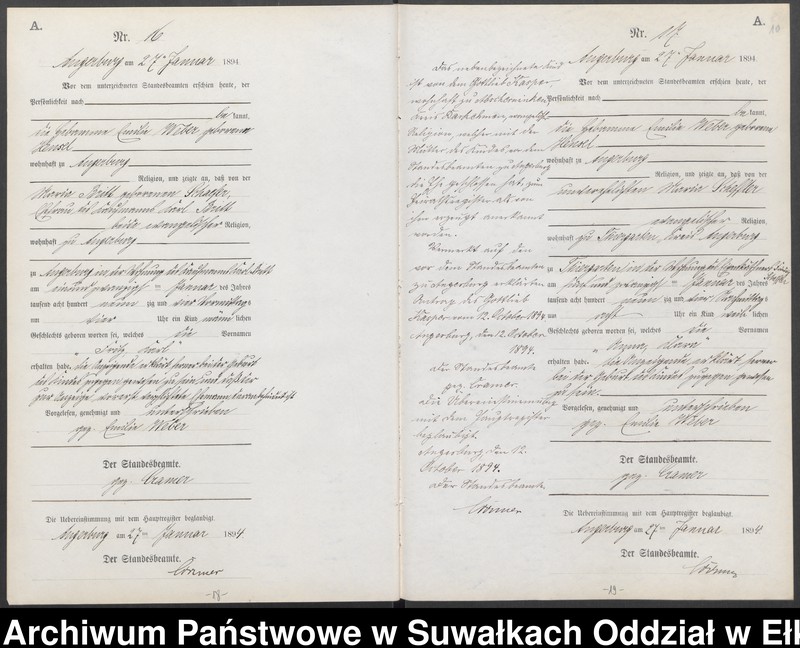 A.
Nr. 16
Angerburg am 27ten Januar 1894
Vor dem unterzeichneten Standesbeamten erschien heute, der
Persönlichkeit nach
be kannt,
die Hebamme Emilie Weber geborene
Hensel
wohnhaft zu Angerburg
Religion, und zeigte an, daß von der
Maria Britt geborenen Schaffer,
Ehefrau des Kaufmanns Karl Britt
beide evangelischer Religion,
wohnhaft zu Angerburg
zu Angerburg in der Wohnung des Kaufmanns Karl Britt
am ein und zwanzigsten Januar des Jahres
tausend acht hundert neun zig und vier Vormittags
um vier Uhr ein Kind männ lichen
Geschlechts geboren worden sei, welches die Vornamen
„Fritz Karl“
erhalten habe. Die Anzeigende erklärt, daß sie bei der Geburt
des Kindes zugegen gewesen sei
Vorgelesen, genehmigt und unterschrieben
gez. Emilie Weber
Der Standesbeamte.
gez. Cramer
Die Uebereinstimmung mit dem Hauptregister beglaubigt
Angerburg am 27ten Januar 1894
Der Standesbeamte.
Cramer
-18-
Das nebenbezeichnete Kind
ist von dem Gottlieb Kaspar,
wohnhaft zu
Religion, welcher mit der
Mutter des Kindes vor dem
Standesbeamten zu Angerburg
die Ehe geschlossen hat, zum
als von
ihm erzeugt anerkannt
worden.
Vermerkt auf den
vor dem Standesbeamten
zu Angerburg erklärten
Antrag des Gottlieb
Kaspar vom 12. October 1894
Angerburg, den 12. October
1894.
Der Standesbeamte
gez. Cramer.
Die Uebereinstimmung
mit dem Hauptregister
beglaubigt.
Angerburg, den 12.
October 1894.
Der Standesbeamte
Cramer
A.
10
Nr. 17
Angerburg am 27ten Januar 1894
Vor dem unterzeichneten Standesbeamten erschien heute, der
Persönlichkeit nach
be kannt,
die Hebamme Emilie Weber geborene
Hensel
wohnhaft zu Angerburg
Religion, und zeigte an, daß von der
unverehelichten Maria Scheffler
evangelischer Religion
wohnhaft zu Thiergarten, Kreis Angerburg
zu Thiergarten in der Wohnung des
am und zwanzigsten Januar des Jahres
tausend acht hundert neun zig und vier Nachmittags
um acht Uhr ein Kind weib lichen
Geschlechts geboren worden sei, welches die Vornamen
„Anna, Clara“
erhalten habe. Die Anzeigende erklärt, daß sie
bei der Geburt des Kindes zugegen gewesen
sei
Vorgelesen, genehmigt und unterschrieben
gez. Emilie Weber
Der Standesbeamte.
gez. Cramer
Die Uebereinstimmung mit dem Hauptregister beglaubigt.
Angerburg am 27ten Januar 1894
Der Standesbeamte.
Cramer
-19-
Archiwum Państwowe w Suwałkach Oddział w Ełk